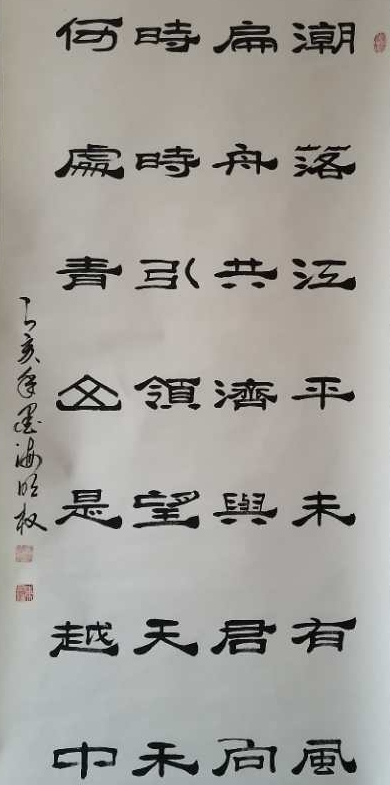 潮落江平未有風
扁舟共濟與君向
時時引領望天禾
何處青山是越中
己亥年墨海明权